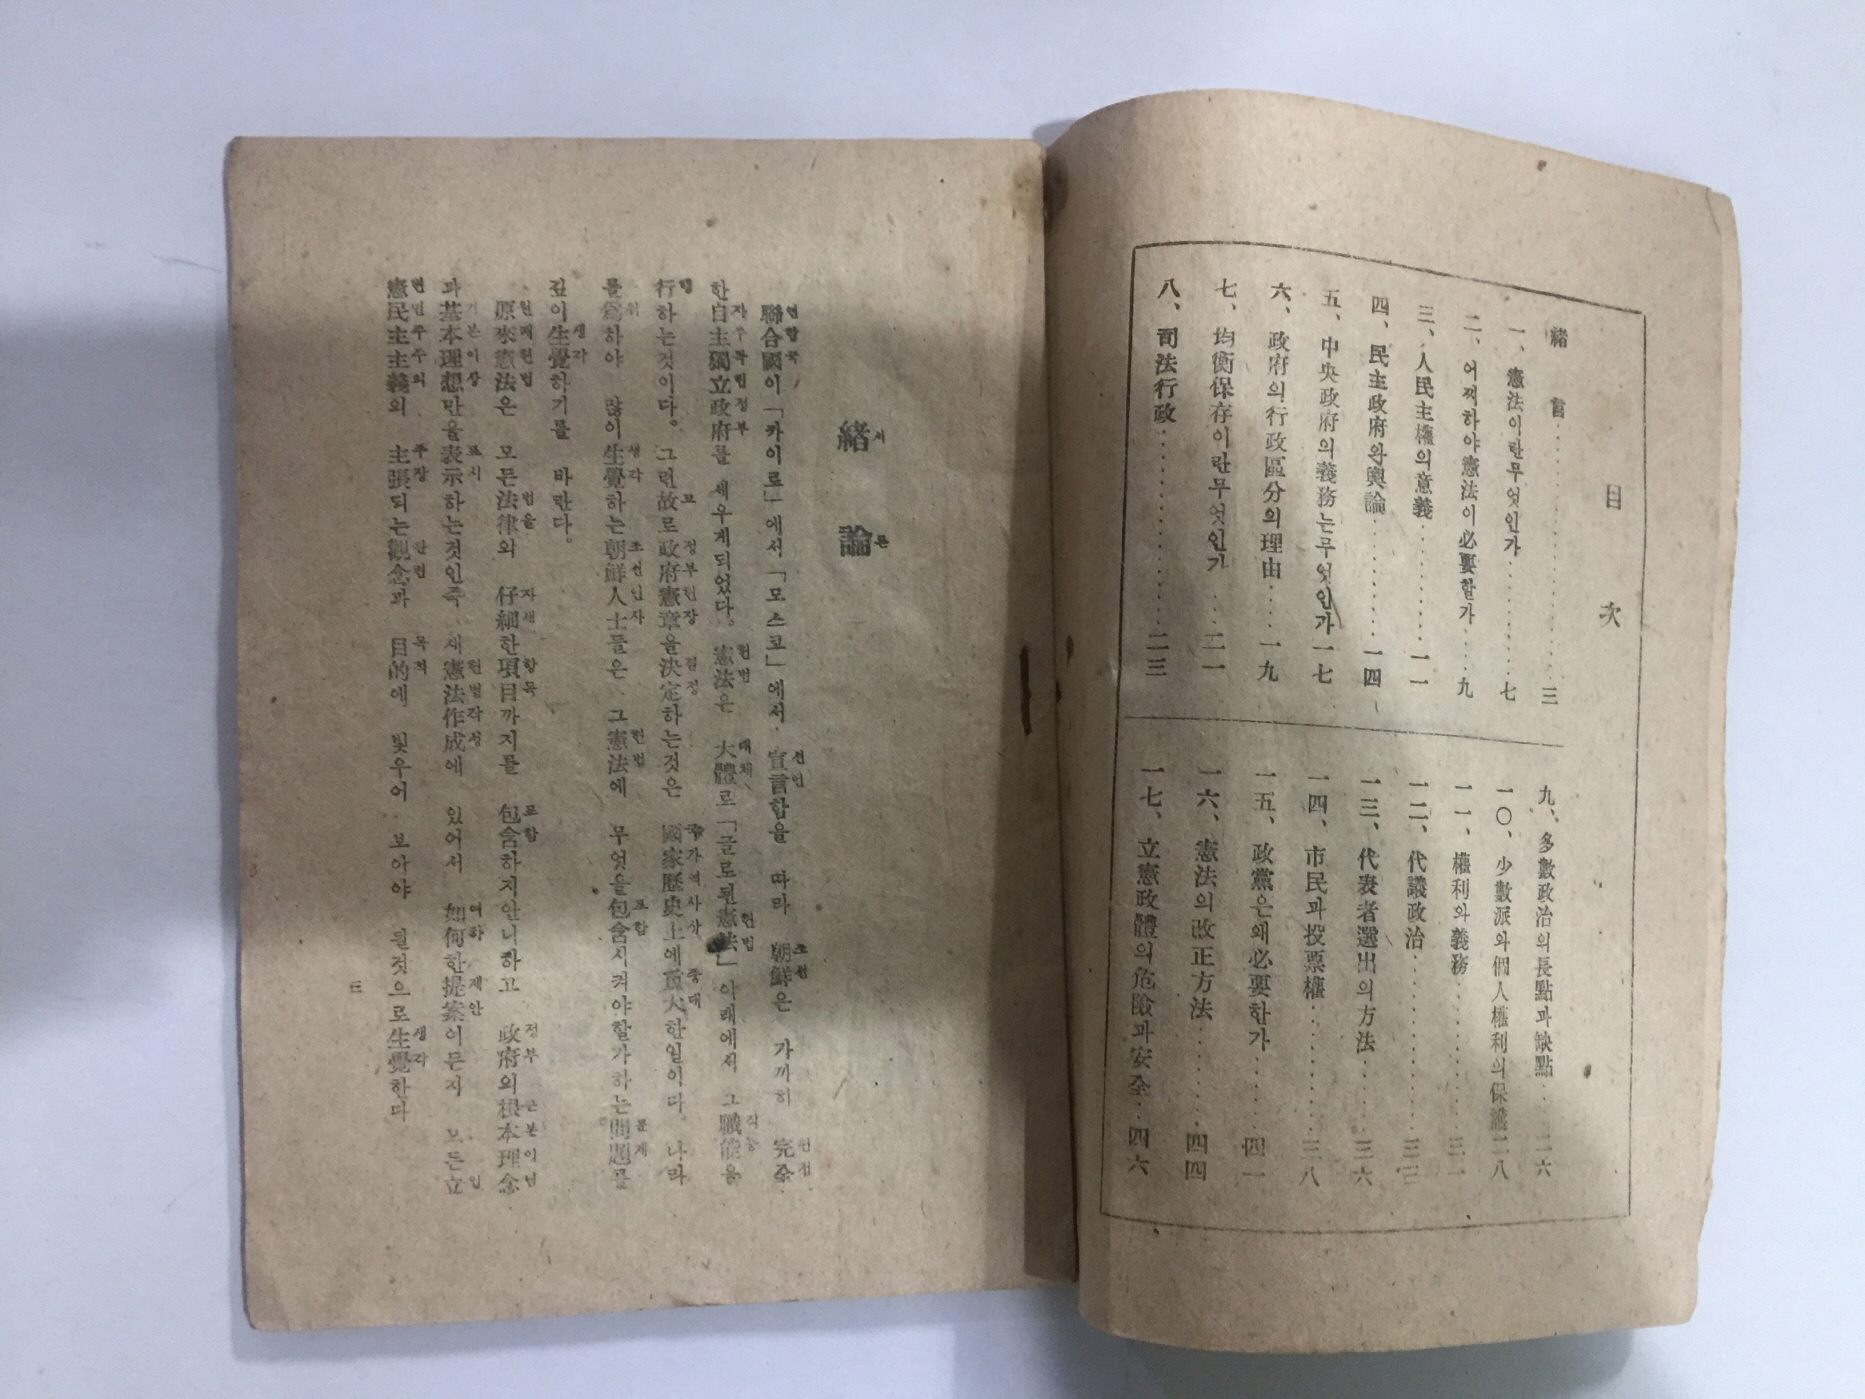 目次
緖言..............三
一、憲法이란무엇인가........七
二、어찌하야憲法이必要할가...九
三、人民主權의意義........一一
四、民主政府와輿論.......一四
五、中央政府의義務는무엇인가一七
六、政府의行政區分의理由...一九
七、均衡保存이란무엇인가...二一
八、司法行政...........二三
九、多數政治의長點과缺點...二六
一〇、少數派와個人權利의保護二八
一一、權利와義務........三一
一二、代議政治.........三三
一三、代表者選出의方法....三六
一四、市民과投票權.......三八
一五、政黨은왜必要한가....四一
一六、憲法의改正方法.....四四
一七、立憲政體의危險과安全..四六
緖論
서론
聯合國이「카이로」에서「모스코」에서 宣言함을 따라 朝鮮은 가까히 完全
연합국 선언 조선 완전
한自主獨立政府를 세우게되었다。憲法은 大體로「글로된憲法」아래에서 그職能을
자주독립정부 헌법 대체 헌법 직능
行하는것이다。그런故로政府憲章을決定하는것은 國家歷史上에重大한일이다。나라
행 고 정부헌장 결정 국가력사상 중대
를爲하야 많이生覺하는朝鮮人士들은 그憲法에 무엇을包含시켜야할가하는問題를
위 생각 조선인사 헌법 포함 문제
깊이生覺하기를 바란다。
생각
原來憲法은 모든法律의 仔細한項目까지를 包含하지안니하고 政府의根本理念
원래헌법 법율 자세 항목 포함 정부 근본이념
과基本理想만을表示하는것인즉 새憲法作成에 있어서 如何한提案이든지 모든立
기본이상 표시 헌법작성 여하 제안 입
憲民主主義의 主張되는觀念과 目的에 빛우어 보아야 될것으로生覺한다
헌민주주의 주장 관념 목적 생각
三